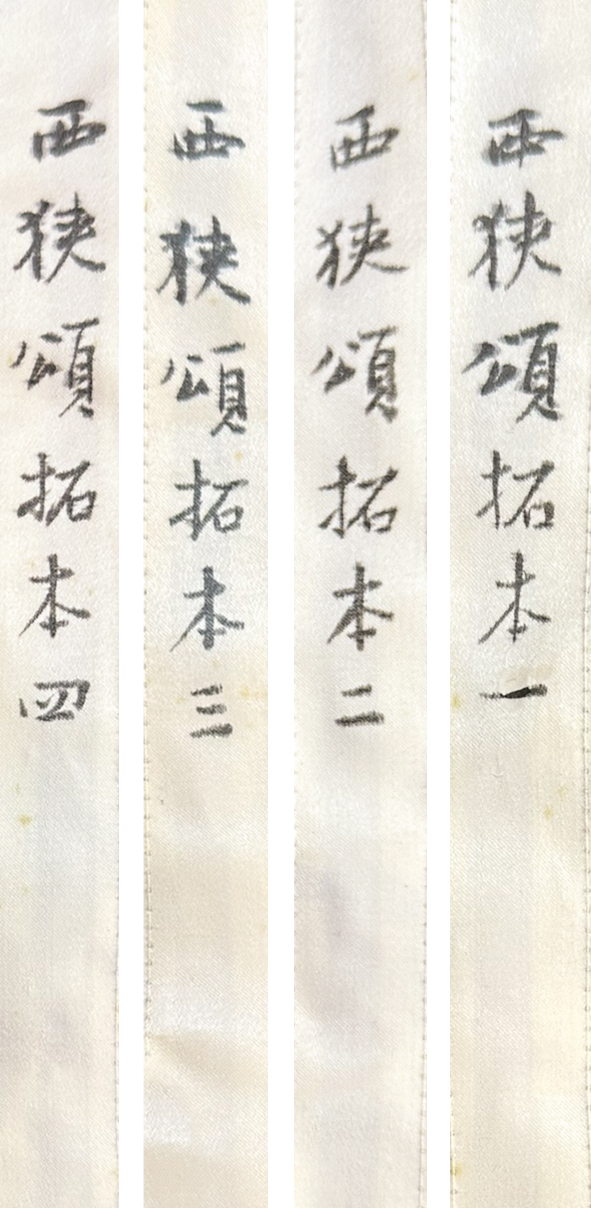 西狭頌拓本一
西狭頌拓本二
西狭頌拓本三
西狭頌拓本四